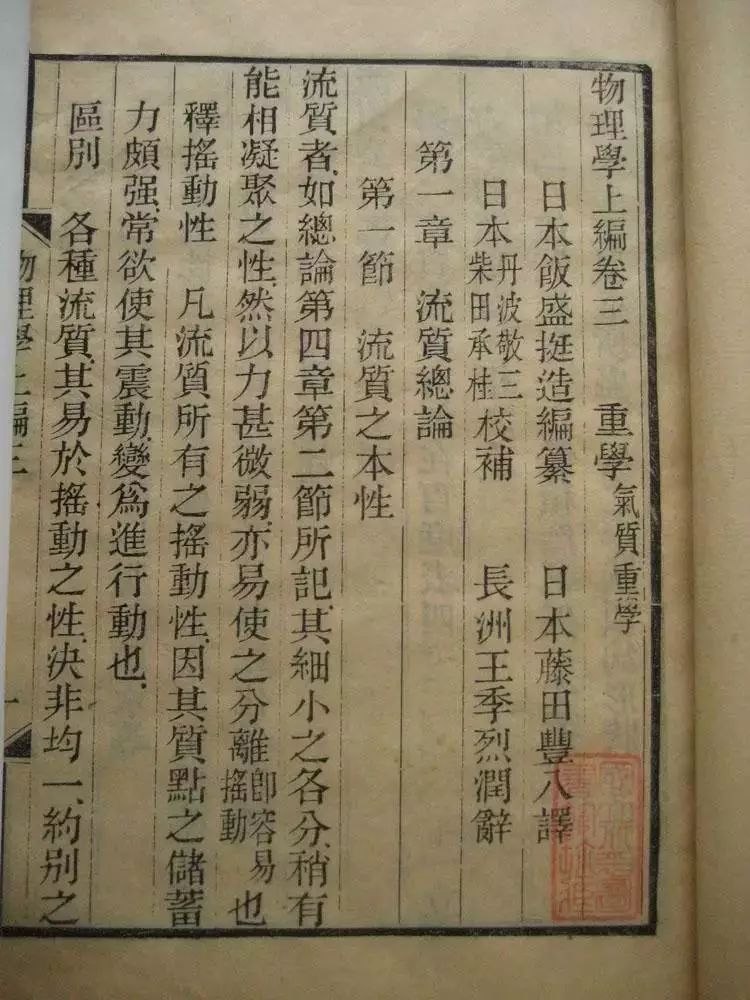 物理學上編卷三　重學氣質重學
日本飯盛挺造編纂　日本藤田豐八譯
日本丹波敬三柴田承桂校補　長洲王季烈潤辭
第一章　流質總論
第一節　流質之本性
流質者、如總論第四章第二節所記、其細小之各分、稍有
能相凝聚之性、然以力甚微弱、亦易使之分離卽容易搖動也
釋搖動性　凡流質所有之搖動性、因其質點之儲蓄
力頗强、常欲使其震動、變爲進行動也、
區別　各種流質、其易於搖動之性、決非均一、約別之
物理學上編三
一